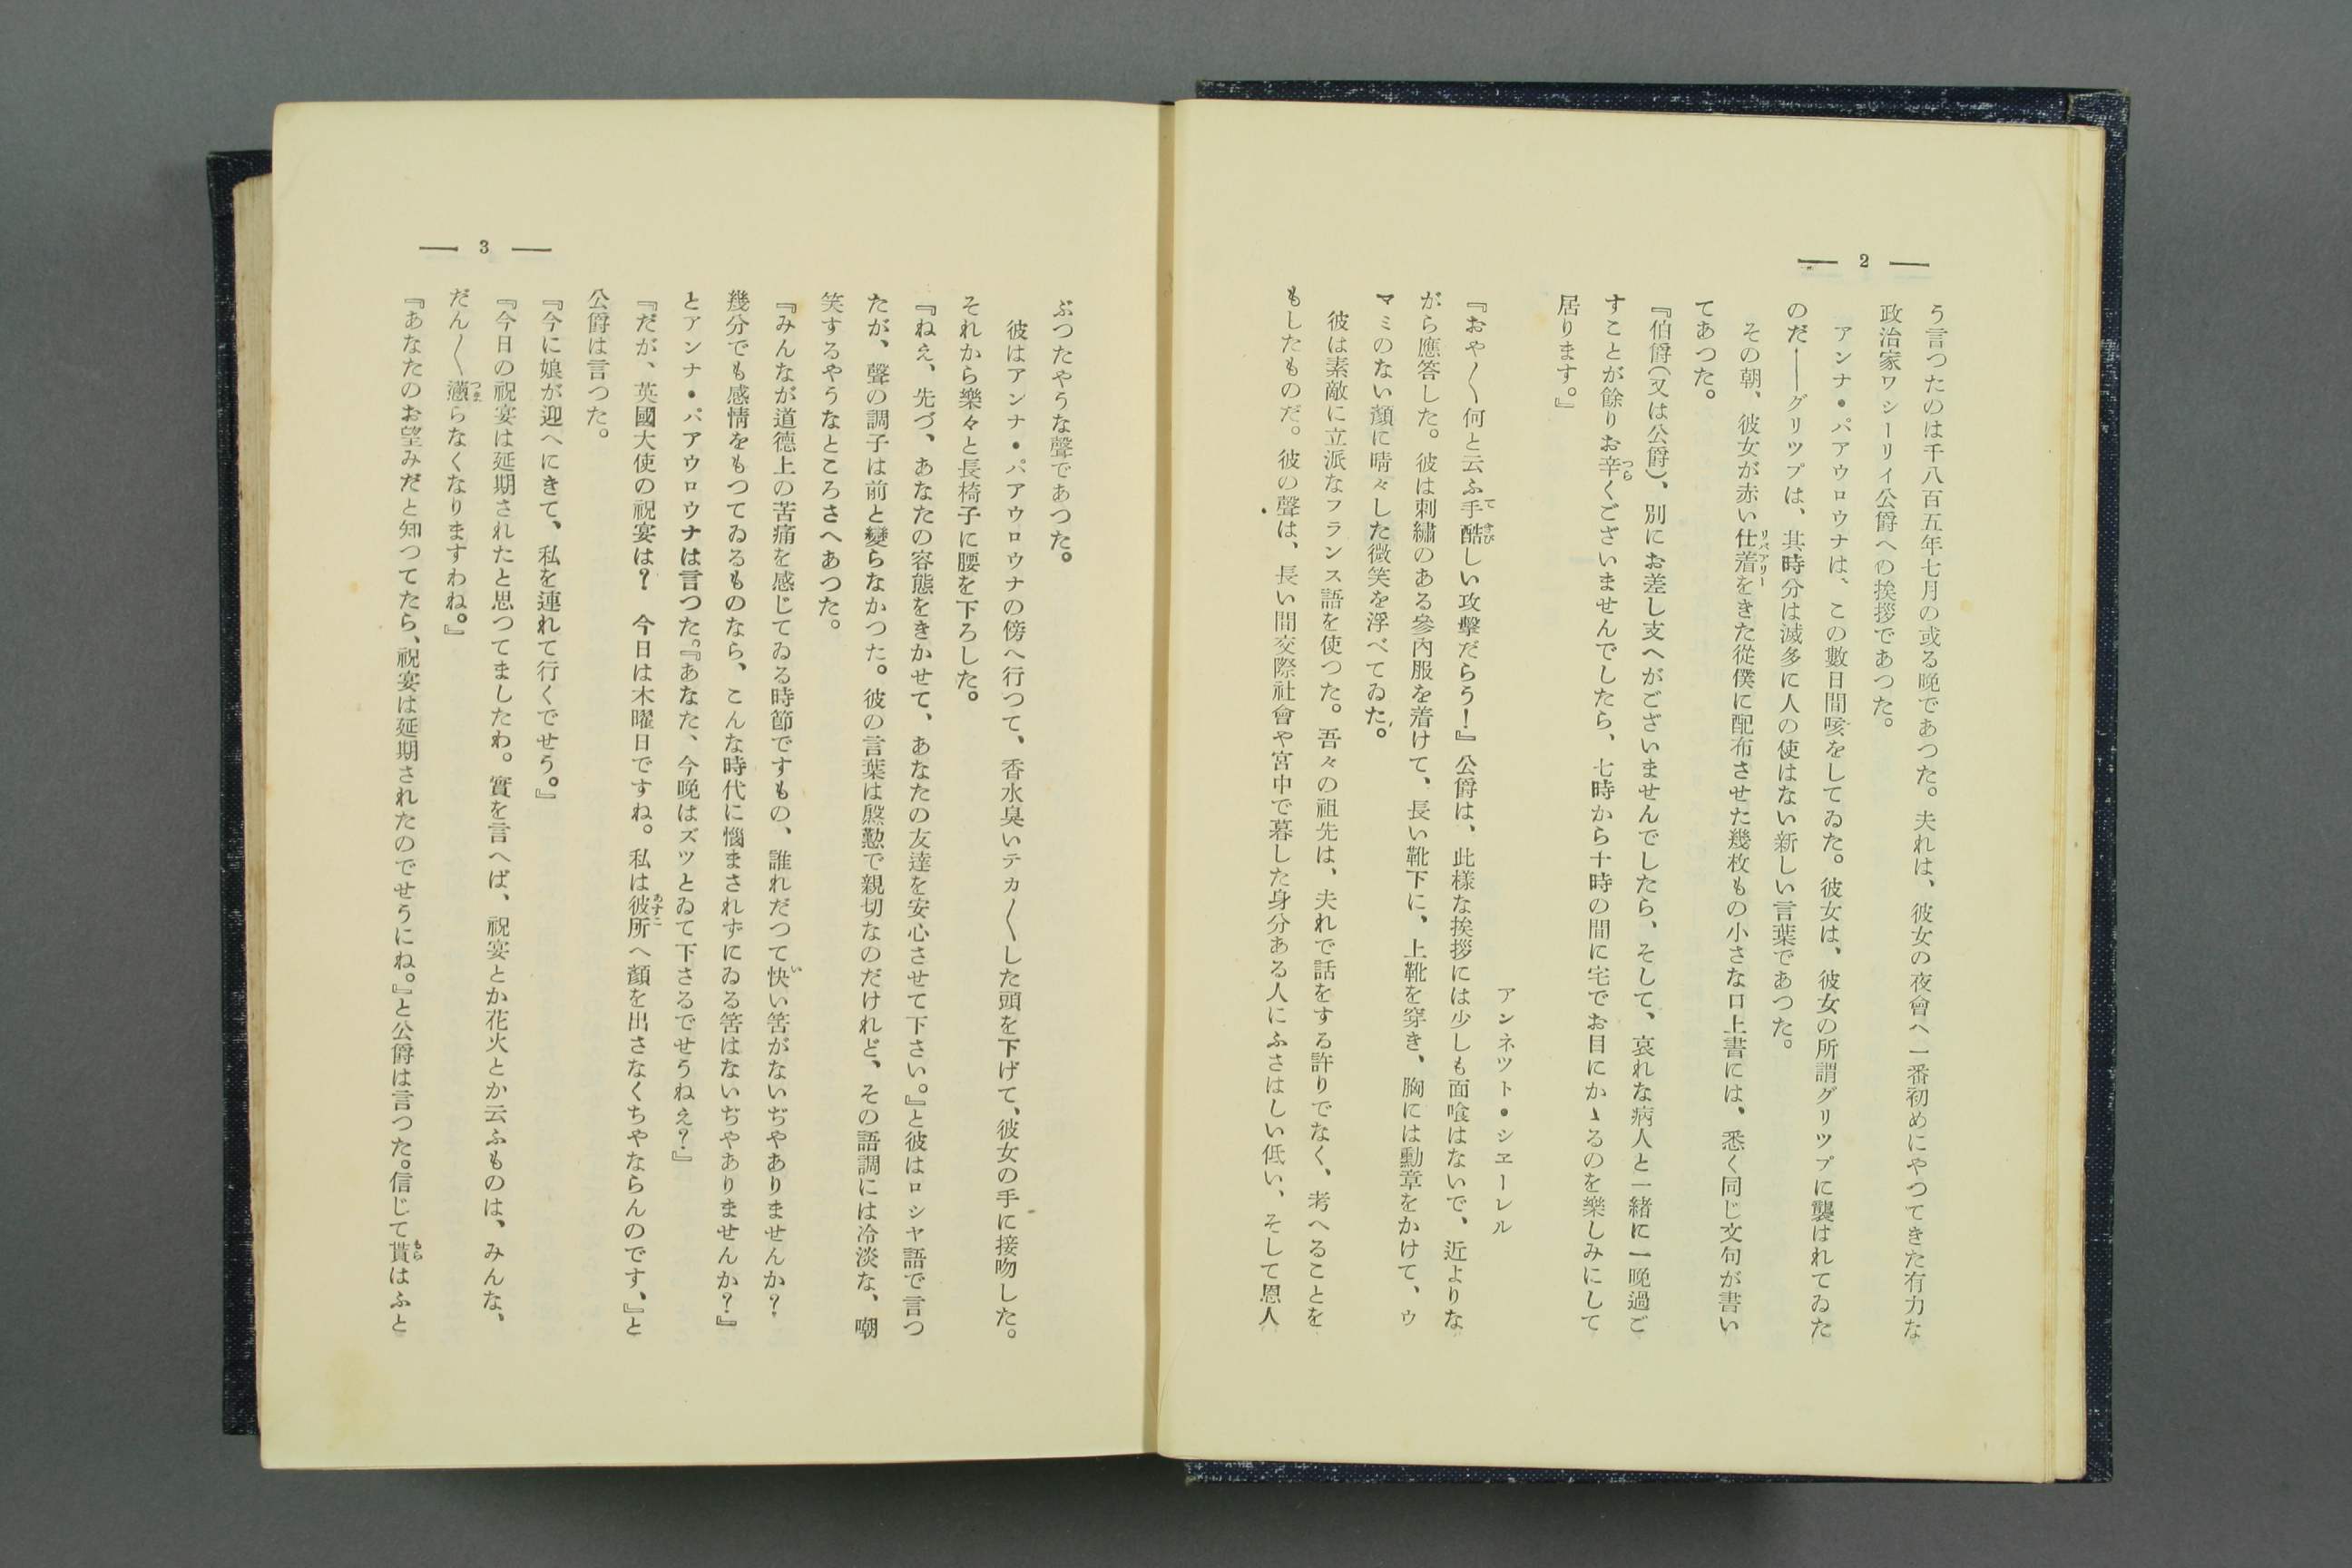 — 2 —
う言つたのは千八百五年七月の或る晩であつた。夫れは、彼女の夜會へ一番初めにやつてきた有力な
政治家ワシーリイ公爵への挨拶であつた。
アンナ・パアウロウナは、この數日間咳をしてゐた。彼女は、彼女の所謂グリツプに襲はれてゐた
のだ——グリツプは、其時分は滅多に人の使はない新しい言葉であつた。
その朝、彼女が赤い仕着をきた從僕に配布させた幾枚もの小さな口上書には、悉く同じ文句が書い
てあつた。
『伯爵(又は公爵)、別にお差し支へがございませんでしたら、そして、哀れな病人と一緒に一晩過ご
すことが餘りお辛くございませんでしたら、七時から十時の間に宅でお目にかゝるのを樂しみにして
居ります。』
アンネツト・シエーレル
『おや〱何と云ふ手酷しい攻擊だらう！』公爵は、此樣な挨拶には少しも面喰はないで、近よりな
がら應答した。彼は刺繡のある參內服を着けて、長い靴下に、上靴を穿き、胸には勳章をかけて、ウ
マミのない顏に晴々した微笑を浮べてゐた。
彼は素敵に立派なフランス語を使つた。吾々の祖先は、夫れで話をする許りでなく、考へることを
もしたものだ。彼の聲は、長い間交際社會や宮中で暮した身分ある人にふさはしい低い、そして恩人
— 3 —
ぶつたやうな聲であつた。
彼はアンナ・パアウロウナの傍へ行つて、香水臭いテカ〱した頭を下げて、彼女の手に接吻した。
それから樂々と長椅子に腰を下ろした。
『ねえ、先づ、あなたの容態をきかせて、あなたの友達を安心させて下さい。』と彼はロシヤ語で言つ
たが、聲の調子は前と變らなかつた。彼の言葉は慇懃で親切なのだけれど、その語調には冷淡な、嘲
笑するやうなところさへあつた。
『みんなが道德上の苦痛を感じてゐる時節ですもの、誰れだつて快い筈がないぢやありませんか？
幾分でも感情をもつてゐるものなら、こんな時代に惱まされずにゐる筈はないぢやありませんか？』
とアンナ・パアウロウナは言つた。『あなた、今晩はズツとゐて下さるでせうねえ？』
『だが、英國大使の祝宴は？　今日は木曜日ですね。私は彼所へ顏を出さなくちやならんのです、』と
公爵は言つた。
『今に娘が迎へにきて、私を連れて行くでせう。』
『今日の祝宴は延期されたと思つてましたわ。實を言へば、祝宴とか花火とか云ふものは、みんな、
だん〱懣らなくなりますわね。』
『あなたのお望みだと知つてたら、祝宴は延期されたのでせうにね。』と公爵は言つた。信じて貰はふと